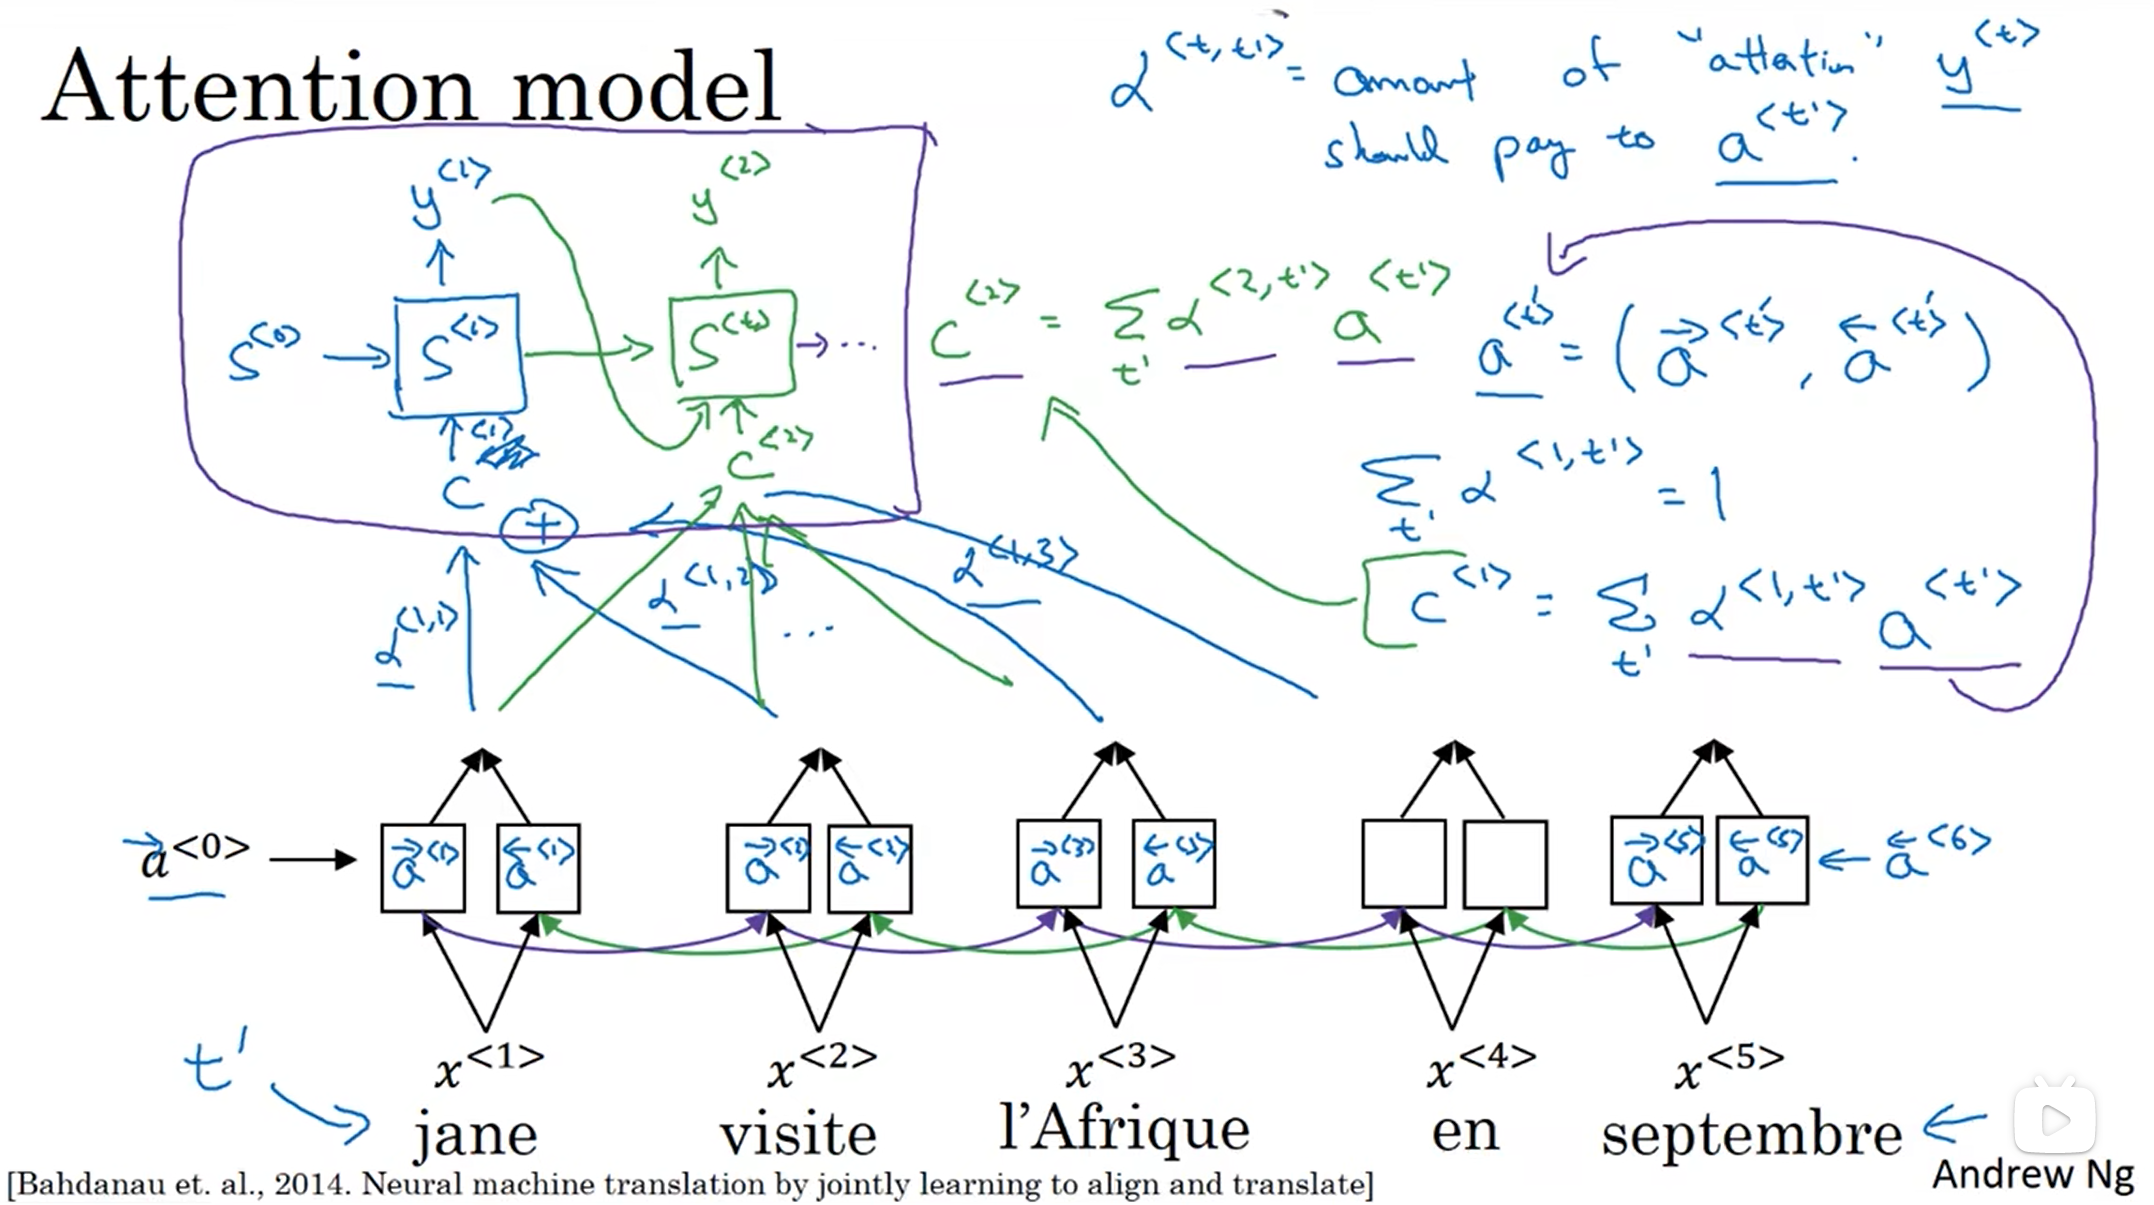 Attention model
α<t,t'> = amount of "attention" y<t>
should pay to a<t'>.
y<1> y<2>
S<0> → S<1> → S<t> → ...
C<1> C<2>
C<2> = Σt' α<2,t'> a<t'>
a<t'> = (→a<t'>, ←a<t'>)
Σt' α<1,t'> = 1
C<1> = Σt' α<1,t'> a<t'>
+
α<1,1> α<1,2> ... α<1,3>
→a<0> → →a<1> ←a<1> →a<2> ←a<2> →a<3> ←a<3> →a<5> ←a<5> ← ←a<6>
t'
x<1> x<2> x<3> x<4> x<5>
jane visite l'Afrique en septembre ←
[Bahdanau et. al., 2014. Neural machine translation by jointly learning to align and translate]
Andrew Ng